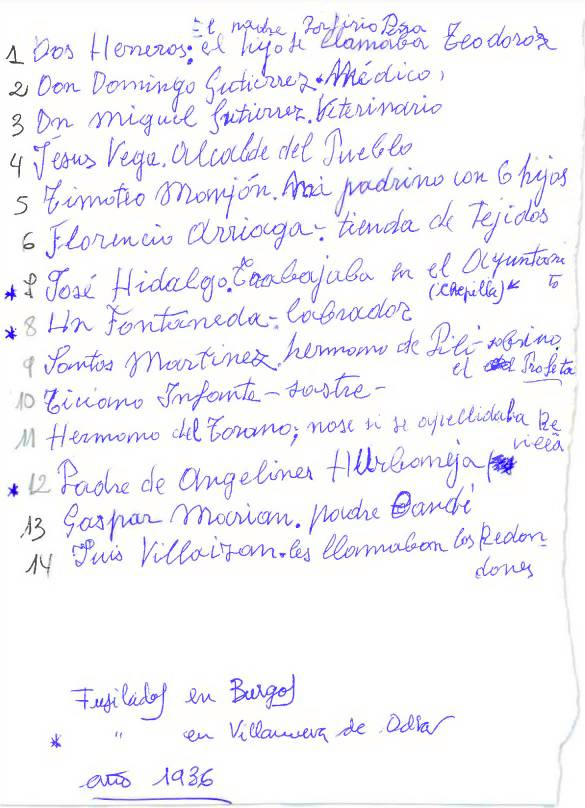 El padre Porfirio Pesa
1 Dos Heneros: el hijo se llamaba Teodoro
2 Don Domingo Gutierrez. Médico,
3 Dn Miguel Gutierrez. Veterinario
4 Jesus Vega. Alcalde del Pueblo
5 Timoteo Monjón. Mi padrino con 6 hijos
6 Florencio Arriaga: tienda de Tejidos
* 7 José Hidalgo. Trabajaba en el Ayuntami
(Chepilla) to
* 8 Un Fontaneda - labrador
9 Santos Martinez, hermano de Pili - sobrino
el Profeta
10 Ticiano Infante - sastre -
11 Hermano del Torano; nose si se apellidaba Re
vieea
* 12 Padre de Angelines Hurbaneja
13 Gaspar Marian. padre Dandé
14 Luis Villaizan. les llamaban los Redon-
dones
Fusilados en Burgos
* " en Villanueva de Odra
año 1936